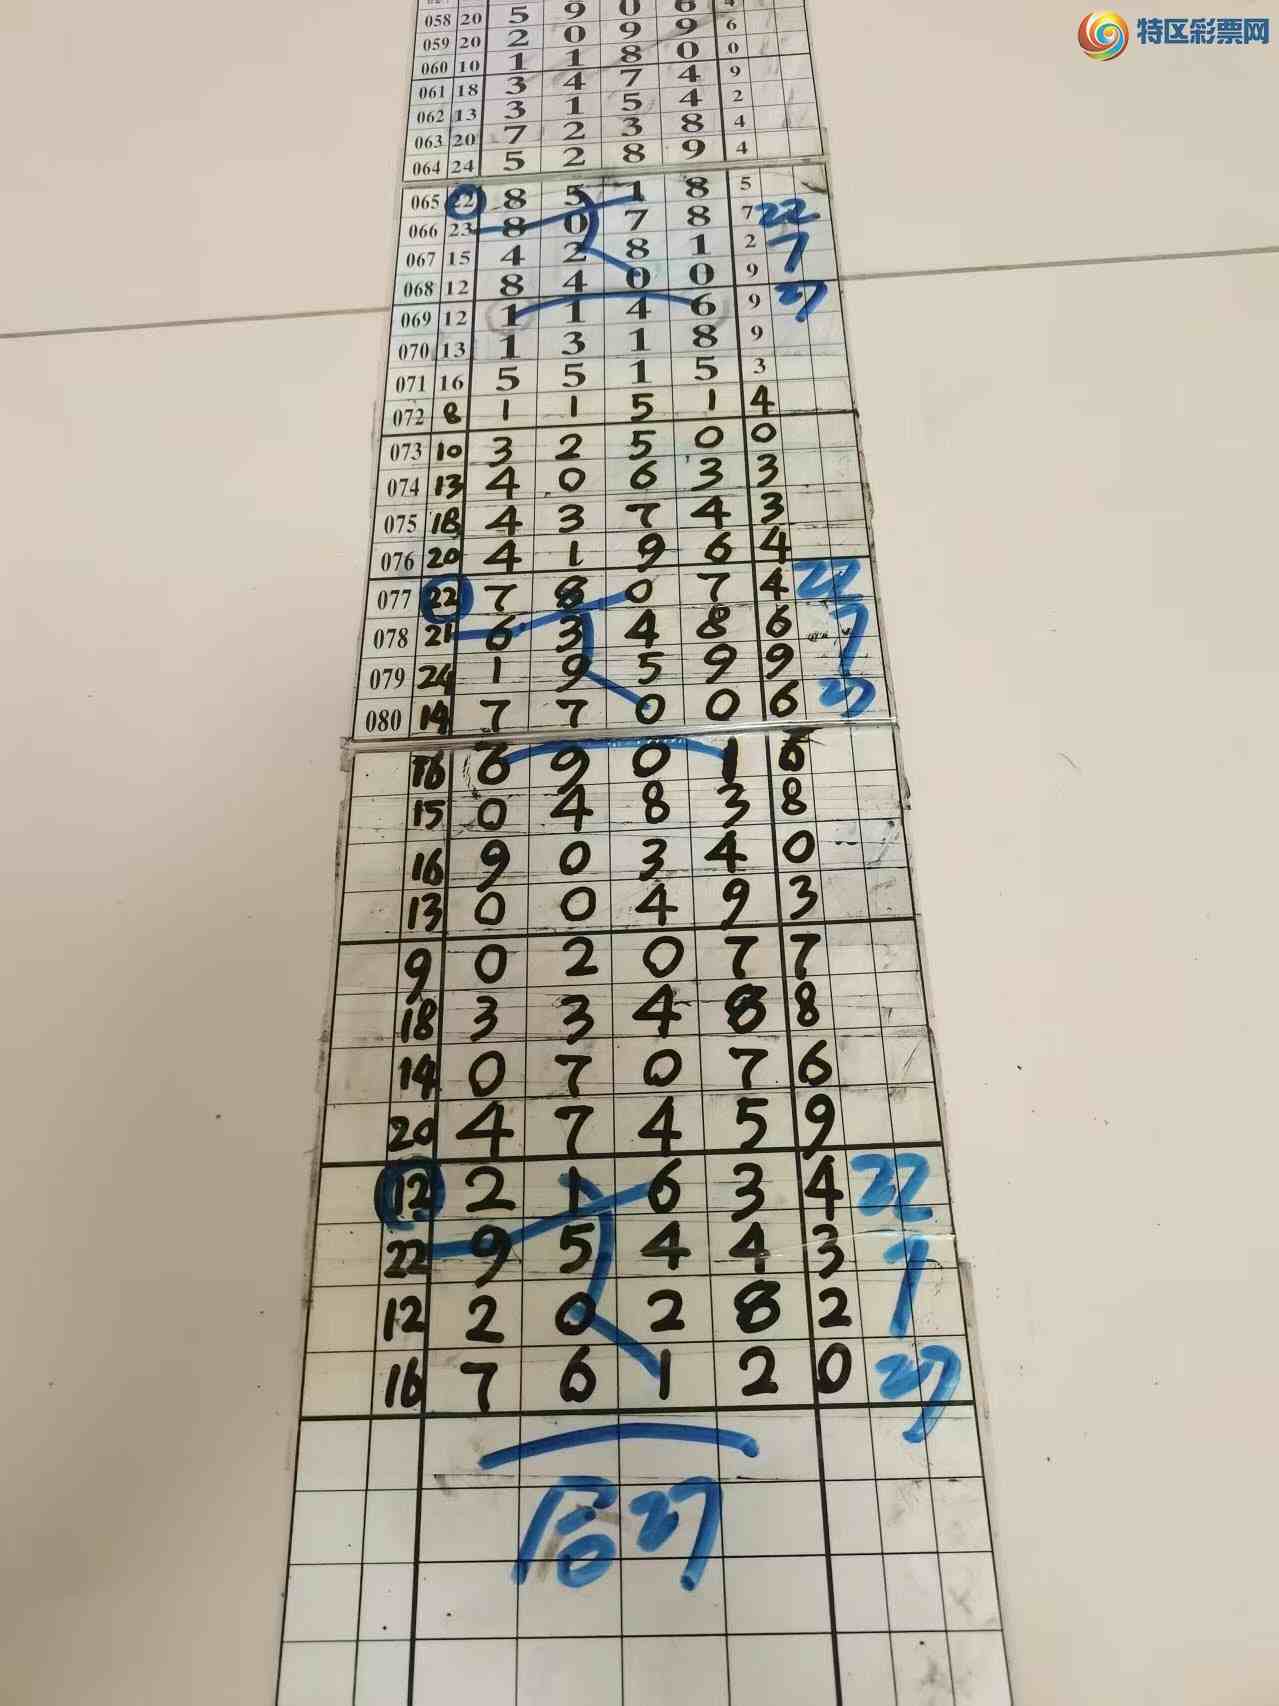 特区彩票网
058 20 5 9 0 6
059 20 2 0 9 9 6
060 10 1 1 8 0 0
061 18 3 4 7 4 9
062 13 3 1 5 4 2
063 20 7 2 3 8 4
064 24 5 2 8 9 4
065 22 8 5 1 8 5
066 23 8 0 7 8 7 22
067 15 4 2 8 1 2 7
068 12 8 4 0 0 9 27
069 12 1 1 4 6 9
070 13 1 3 1 8 9
071 16 5 5 1 5 3
072 8 1 1 5 1 4
073 10 3 2 5 0 0
074 13 4 0 6 3 3
075 18 4 3 7 4 3
076 20 4 1 9 6 4
077 22 7 8 0 7 4 22
078 21 6 3 4 8 6 7
079 24 1 9 5 9 9
080 14 7 7 0 0 6 27
16 6 9 0 1 6
15 0 4 8 3 8
16 9 0 3 4 0
13 0 0 4 9 3
9 0 2 0 7 7
18 3 3 4 8 8
14 0 7 0 7 6
20 4 7 4 5 9
12 2 1 6 3 4 22
22 9 5 4 4 3 7
12 2 0 2 8 2
16 7 6 1 2 0 27
合27